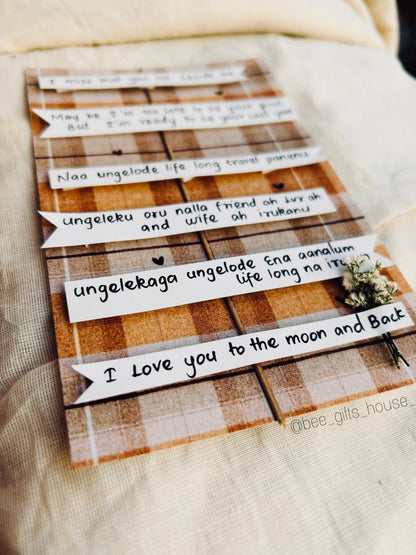 I miss that you not beside me
May be I'm too late to be your first
But I'm ready to be your last
Naa ungelode life long travel pananu
ungeleku oru nalla friend ah lvr ah
and wife ah irukanu
ungelekaga ungelode ena aanalum
life long na
I Love you to the moon and Back
@bee_gifts_house_